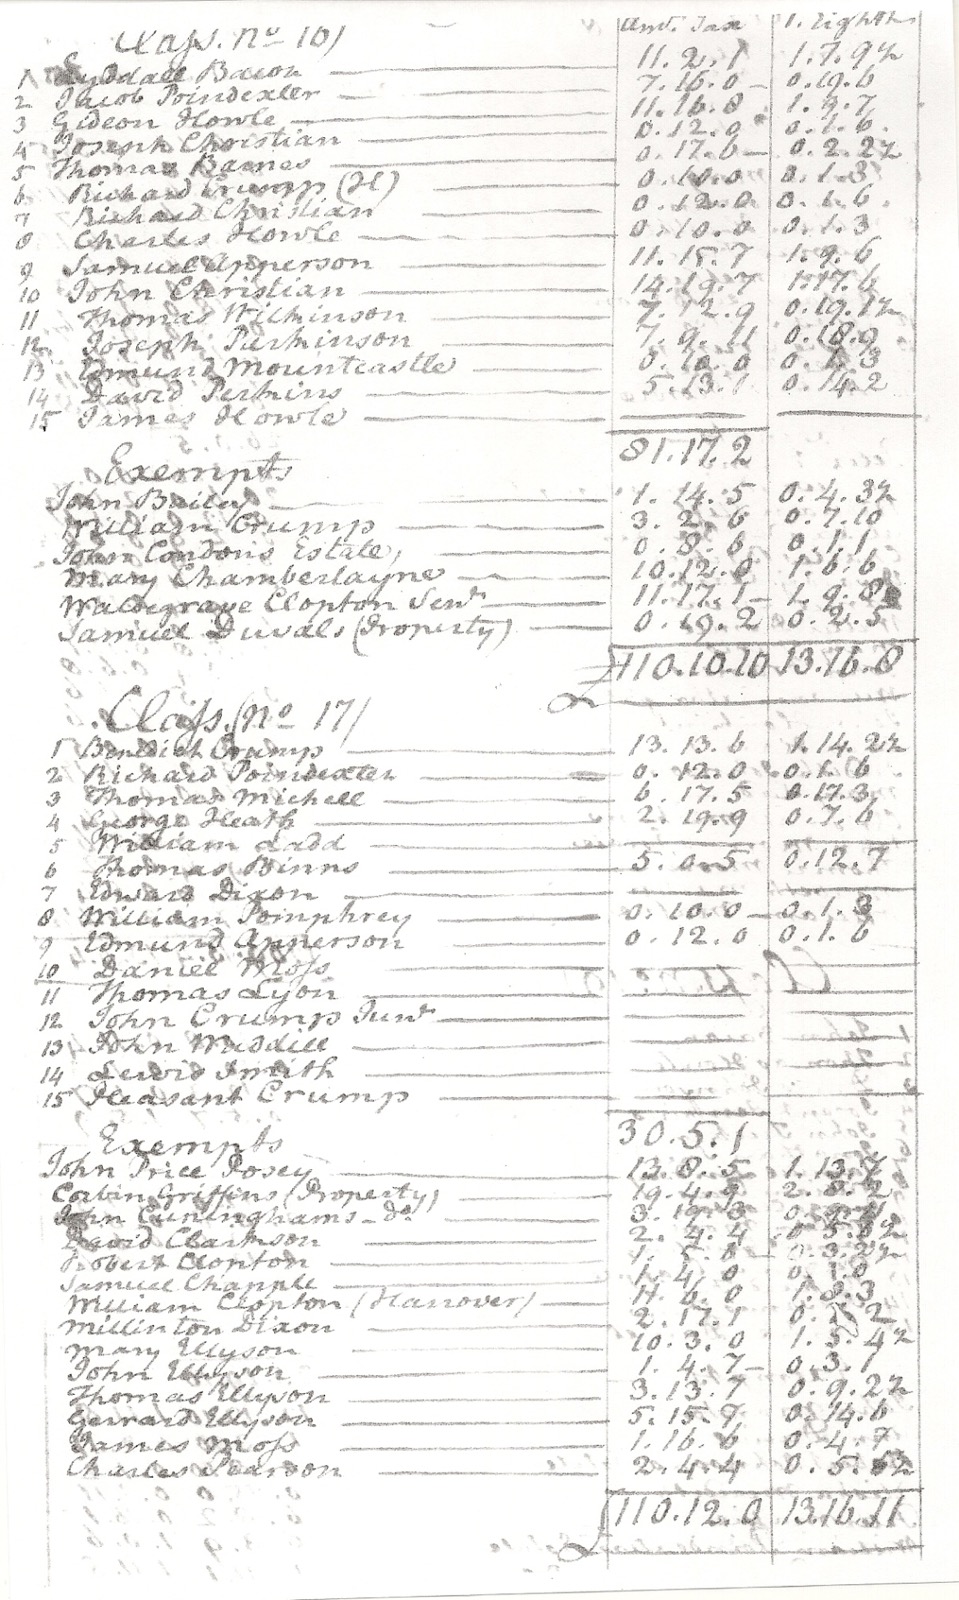 Class. No 16) Amt. Tax 1. Eighth
1 Lyddall Bacon 11.2.1 1.7.9½
2 Jacob Poindexter 7.16.0 0.19.6
3 Gideon Howle 11.16.8 1.9.7
4 Joseph Christian 0.12.0 0.1.6
5 Thomas Barnes 0.17.6 0.2.2½
6 Richard Crump (H) 0.10.0 0.1.3
7 Richard Christian 0.12.0 0.1.6
8 Charles Howle 0.10.0 0.1.3
9 Samuel Apperson 11.15.7 1.9.6
10 John Christian 14.19.7 1.17.6
11 Thomas Wilkinson 7.12.9 0.19.1½
12 Joseph Parkinson 7.9.11 0.18.9
13 Edmund Mountcastle 0.10.0 0.1.3
14 David Perkins 5.13.1 0.14.2
15 James Howle
81.17.2
Exempts
John Bailey 1.14.5 0.4.3½
William Crump 3.2.6 0.7.10
John Condons Estate, 0.8.6 0.1.1
Mary Chamberlayne 10.12.0 1.6.6
Waldegrave Clopton Senr 11.17.1 1.9.8
Samuel Duvals (Property) 0.19.2 0.2.5
£110.10.10 13.16.8
Class. No 17)
1 Benedict Crump 13.13.6 1.14.2½
2 Richard Poindexter 0.12.0 0.1.6
3 Thomas Michell 6.17.5 0.17.3
4 George Heath 2.19.9 0.7.6
5 William Ladd
6 Thomas Binns 5.0.5 0.12.7
7 Edward Dixon
8 William Pomphrey 0.10.0 0.1.3
9 Edmund Apperson 0.12.0 0.1.6
10 Daniel Moss
11 Thomas Lyon
12 John Crump Junr
13 John Muddill
14 Lewis Smith
15 Pleasant Crump
30.5.1
Exempts
John Price Posey 13.8.5 1.13.7
Corbin Griffins (Property) 19.4.9 2.8.2
John Cuninghams do 3.19.3
David Clarkson 2.4.4
Robert Clopton 1.5.8 0.3.2½
Samuel Chapple 1.4.0
William Clopton (Hanover) 11.6.0 1.8.3
Millinton Dixon 2.17.1
Mary Ellyson 10.3.0 1.5.4½
John Ellyson 1.4.7 0.3.1
Thomas Ellyson 3.13.7 0.9.2½
Gerrard Ellyson 5.15.9 0.14.6
James Moss 1.16.6 0.4.7
Charles Pearson 2.4.4 0.5.6½
£110.12.0 13.16.11